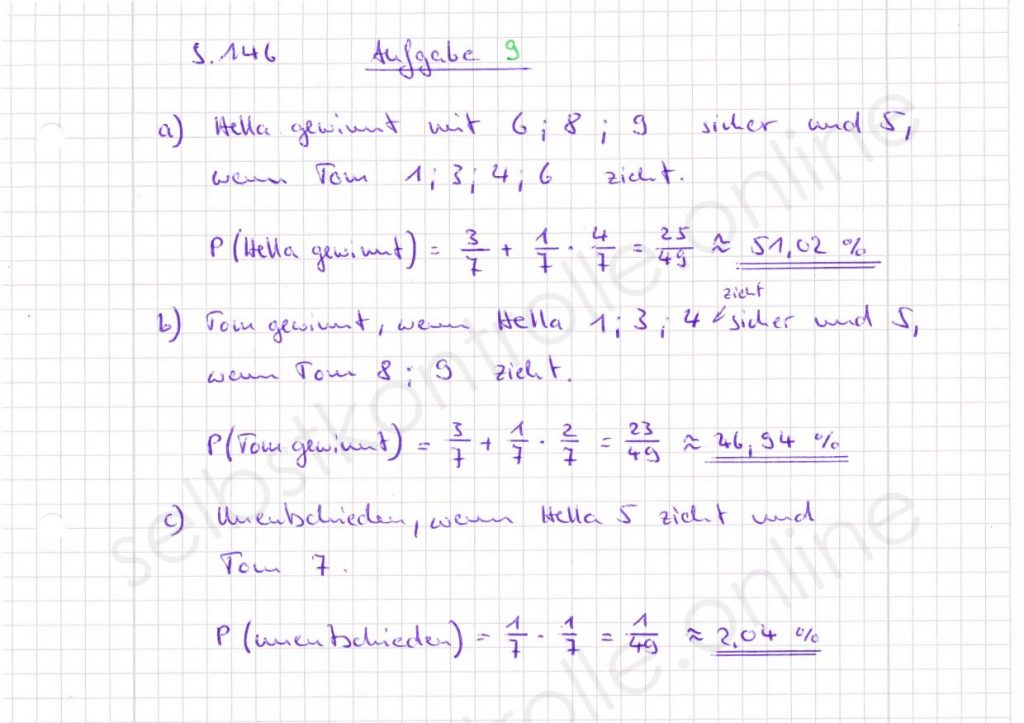 S. 146 Aufgabe 9
a) Hella gewinnt mit 6 ; 8 ; 9 sicher und 5,
wenn Tom 1 ; 3 ; 4 ; 6 zieht.
P (Hella gewinnt) = 3/7 + 1/7 · 4/7 = 25/49 ≈ 51,02 %
zieht
b) Tom gewinnt, wenn Hella 1 ; 3 ; 4 sicher und 5,
wenn Tom 8 ; 9 zieht.
P (Tom gewinnt) = 3/7 + 1/7 · 2/7 = 23/49 ≈ 46,94 %
c) Unentschieden, wenn Hella 5 zieht und
Tom 7.
P (unentschieden) = 1/7 · 1/7 = 1/49 ≈ 2,04 %
selbstkontrolle.online
selbstkontrolle.online